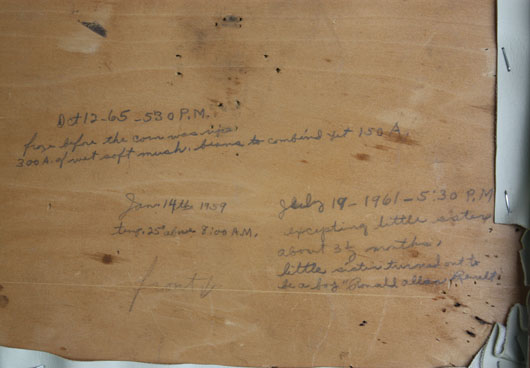 Oct 12-65-530 P.M.
froze before the corn was ripe,
300 A. of wet soft mush. beans to combine yet 150 A.
Jan 19th 1959
temp. 25° above 8:00 A.M.
July 19-1961-5:30 P.M
excepting little sister
about 3½ months,
little sister turned out to
be a boy Ronald allen
front